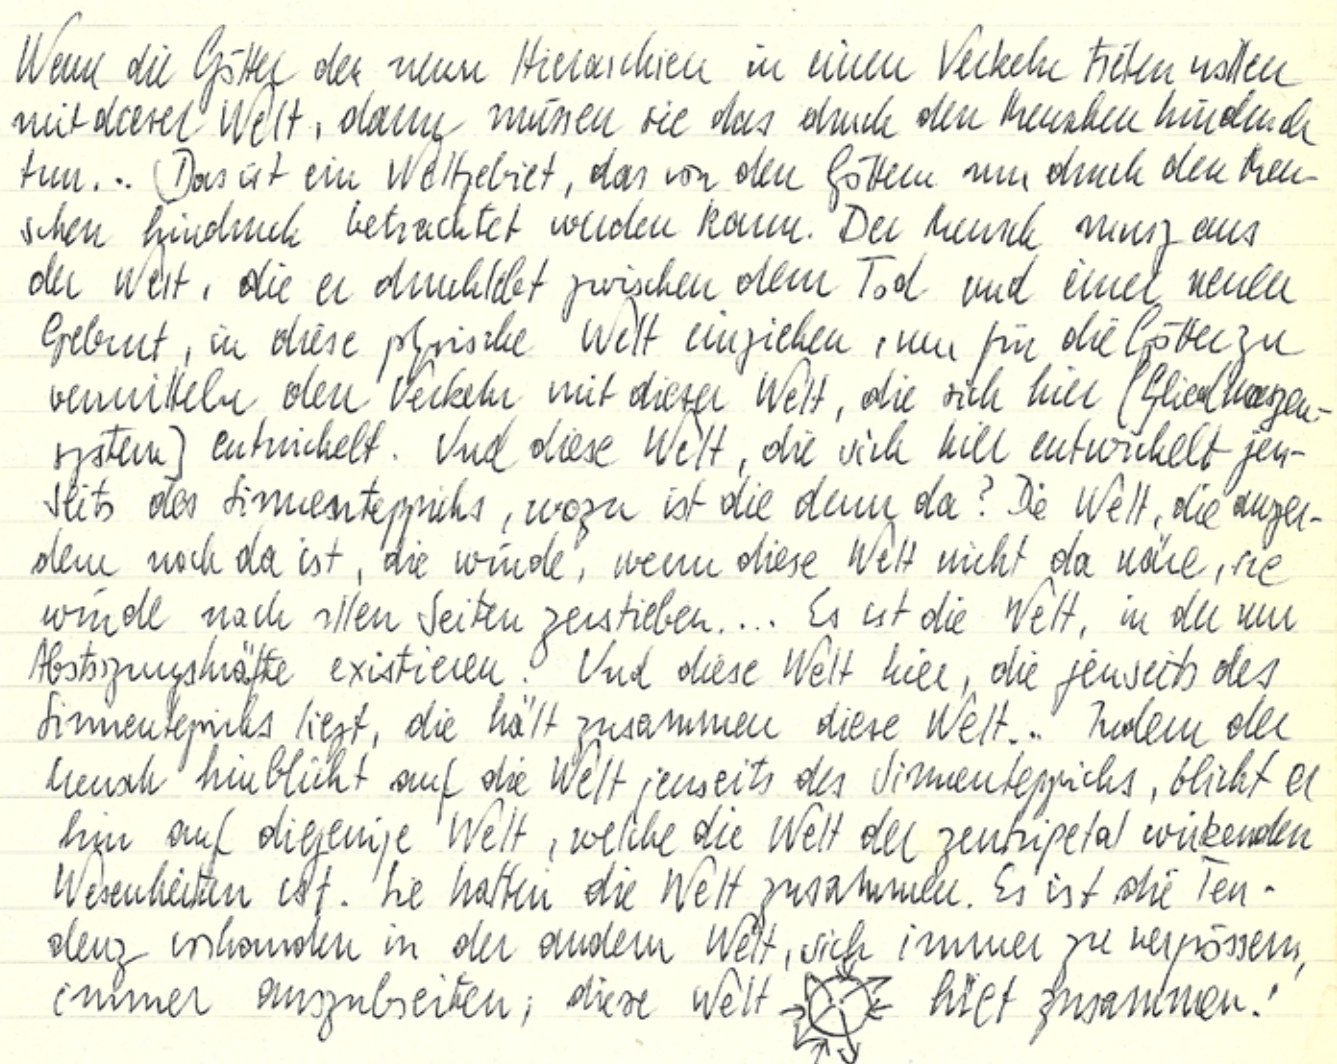 Wenn die Götter der neun Hierarchien in einen Verkehr treten wollen
mit dieser Welt, dann müssen sie das durch den Menschen hindurch
tun... (Das ist ein Weltgebiet, das von den Göttern nur durch den Men-
schen hindurch betrachtet werden kann. Der Mensch musz aus
der Welt, die er durchlebt zwischen dem Tod und einer neuen
Geburt, in diese physische Welt einziehen, um für die Götter zu
vermitteln den Verkehr mit dieser Welt, die sich hier (Gliedmaszen-
system) entwickelt. Und diese Welt, die sich hier entwickelt jen-
seits des Sinnesteppichs, wozu ist die denn da? Die Welt, die auszer-
dem noch da ist, die würde, wenn diese Welt nicht da wäre, sie
würde nach allen Seiten zerstieben.... Es ist die Welt, in der nur
Abstoszungskräfte existieren. Und diese Welt hier, die jenseits des
Sinnenteppichs liegt, die hält zusammen diese Welt... Indem der
Mensch hinblickt auf die Welt jenseits des Sinnenteppichs, blickt er
hin auf diejenige Welt, welche die Welt der zentripetal wirkenden
Wesenheiten ist. Sie halten die Welt zusammen. Es ist die Ten-
denz vorhanden in der andern Welt, sich immer zu vergrössern,
immer auszubreiten; diese Welt hält zusammen!